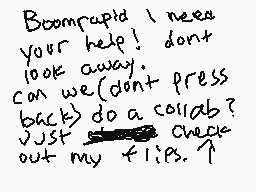 Boomrapid I need
your help! dont
look away.
can we (dont press
back) do a collab?
Just check
out my flips. ↑